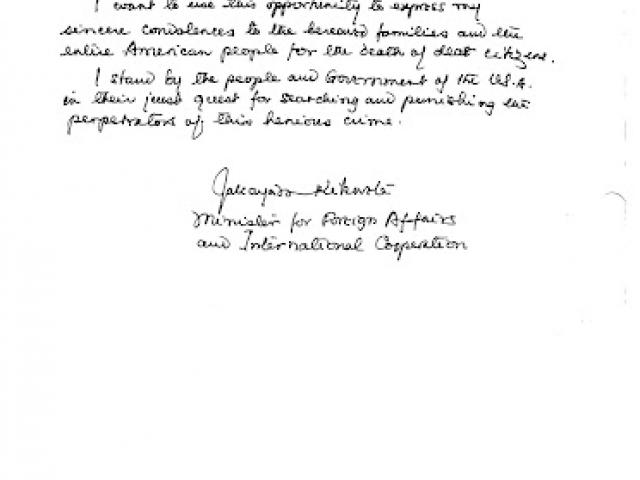 I want to use this opportunity to express my
sincere condolences to the bereaved families and the
entire American people for the death of dear citizens.
I stand by the people and Government of the U.S.A.
in their just quest for searching and punishing the
perpetrators of this heneious crime.
Jakaya Kikwete
Minister for Foreign Affairs
and International Cooperation